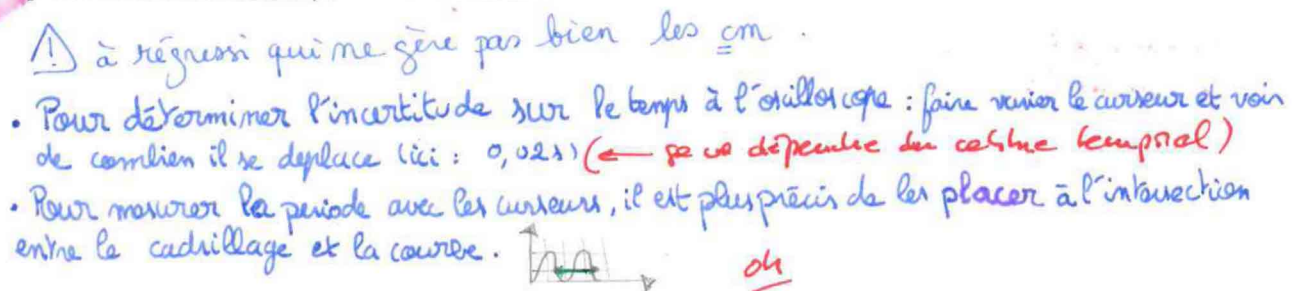 ⚠ à régressi qui ne gère pas bien les cm.
• Pour déterminer l'incertitude sur le temps à l'oscilloscope : faire varier le curseur et voir
de combien il se deplace (ici : 0,02s) (← ça va dépendre du calibre temporel)
• Pour mesurer la periode avec les curseurs, il est plus précis de les placer à l'intersection
entre le cadrillage et la courbe.
ok